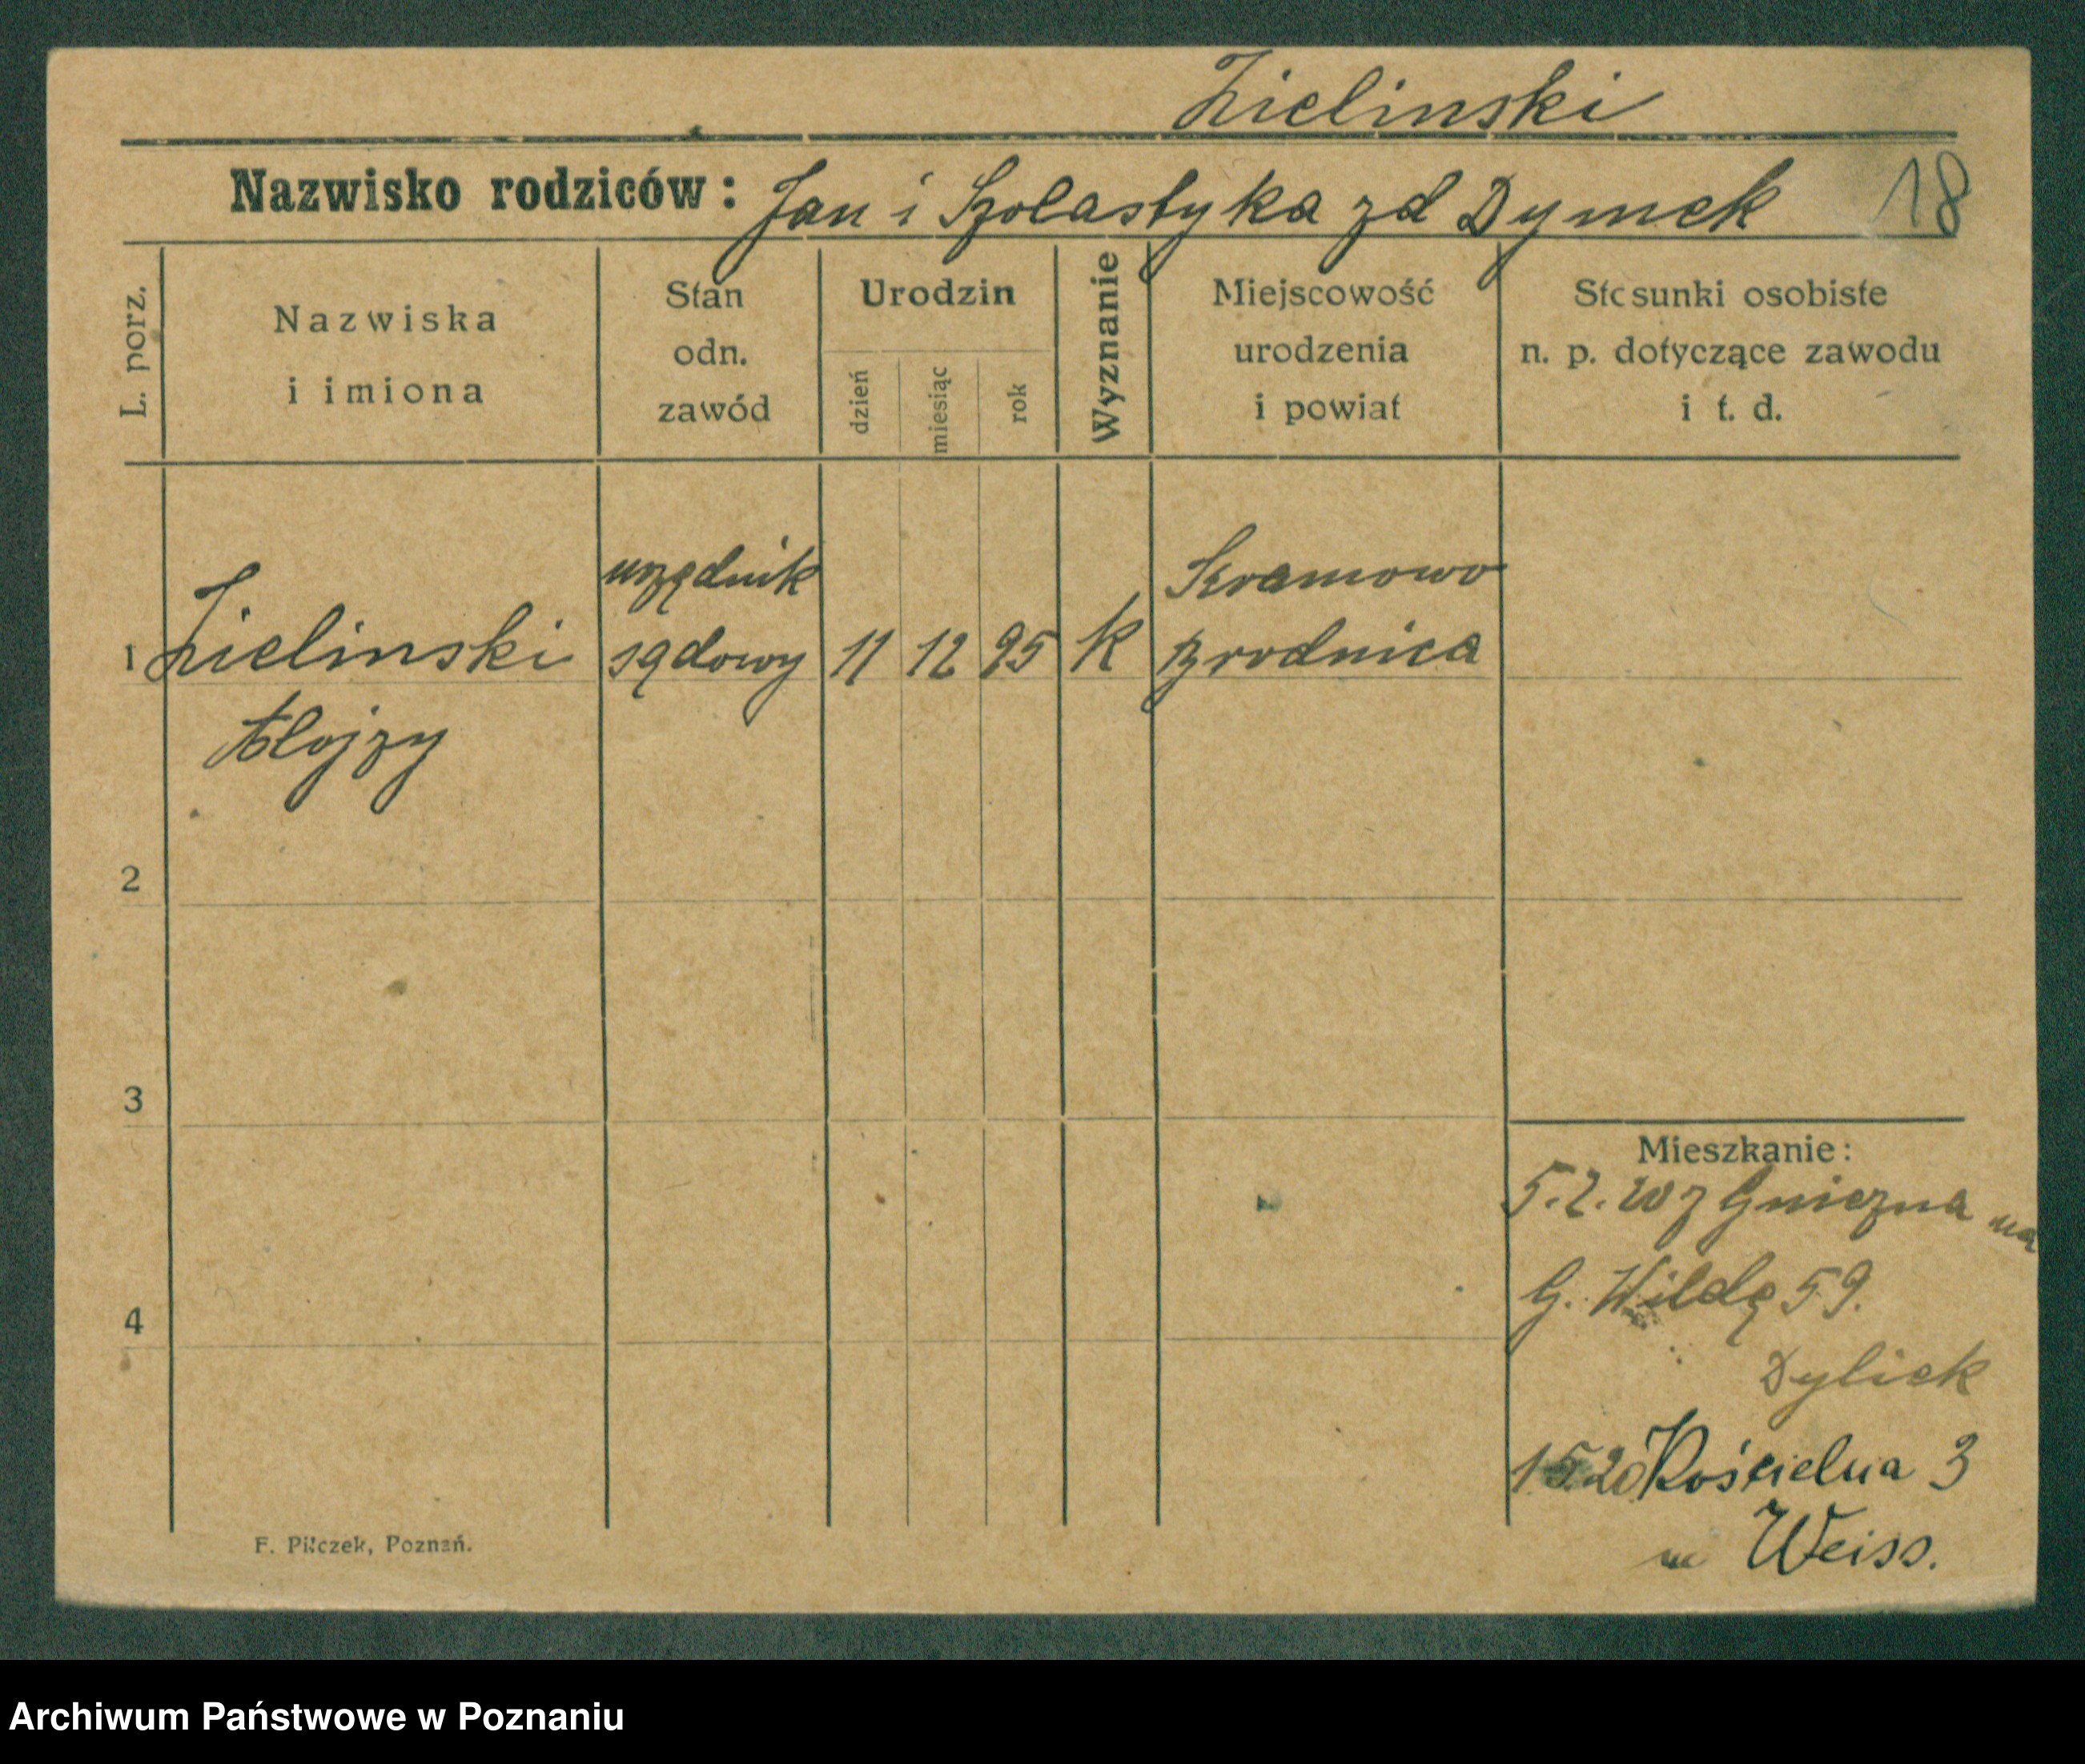 Zielinski
Nazwisko rodziców: Jan i Szolastyka zd Dymek 18
L. porz.
Nazwiska
i imiona
Stan
odn.
zawód
Urodzin
dzień
miesiąc
rok
Wyznanie
Miejscowość
urodzenia
i powiat
Stosunki osobiste
n. p. dotyczące zawodu
i t. d.
1 Zielinski urzędnik sądowy 11 12 95 K Brodnica
Alojzy
2
3
4
Mieszkanie:
5.2. z Gniezna na
G. Wildę 59.
Kościelna 3
Weiss.
F. Pilczek, Poznań.
Archiwum Państwowe w Poznaniu